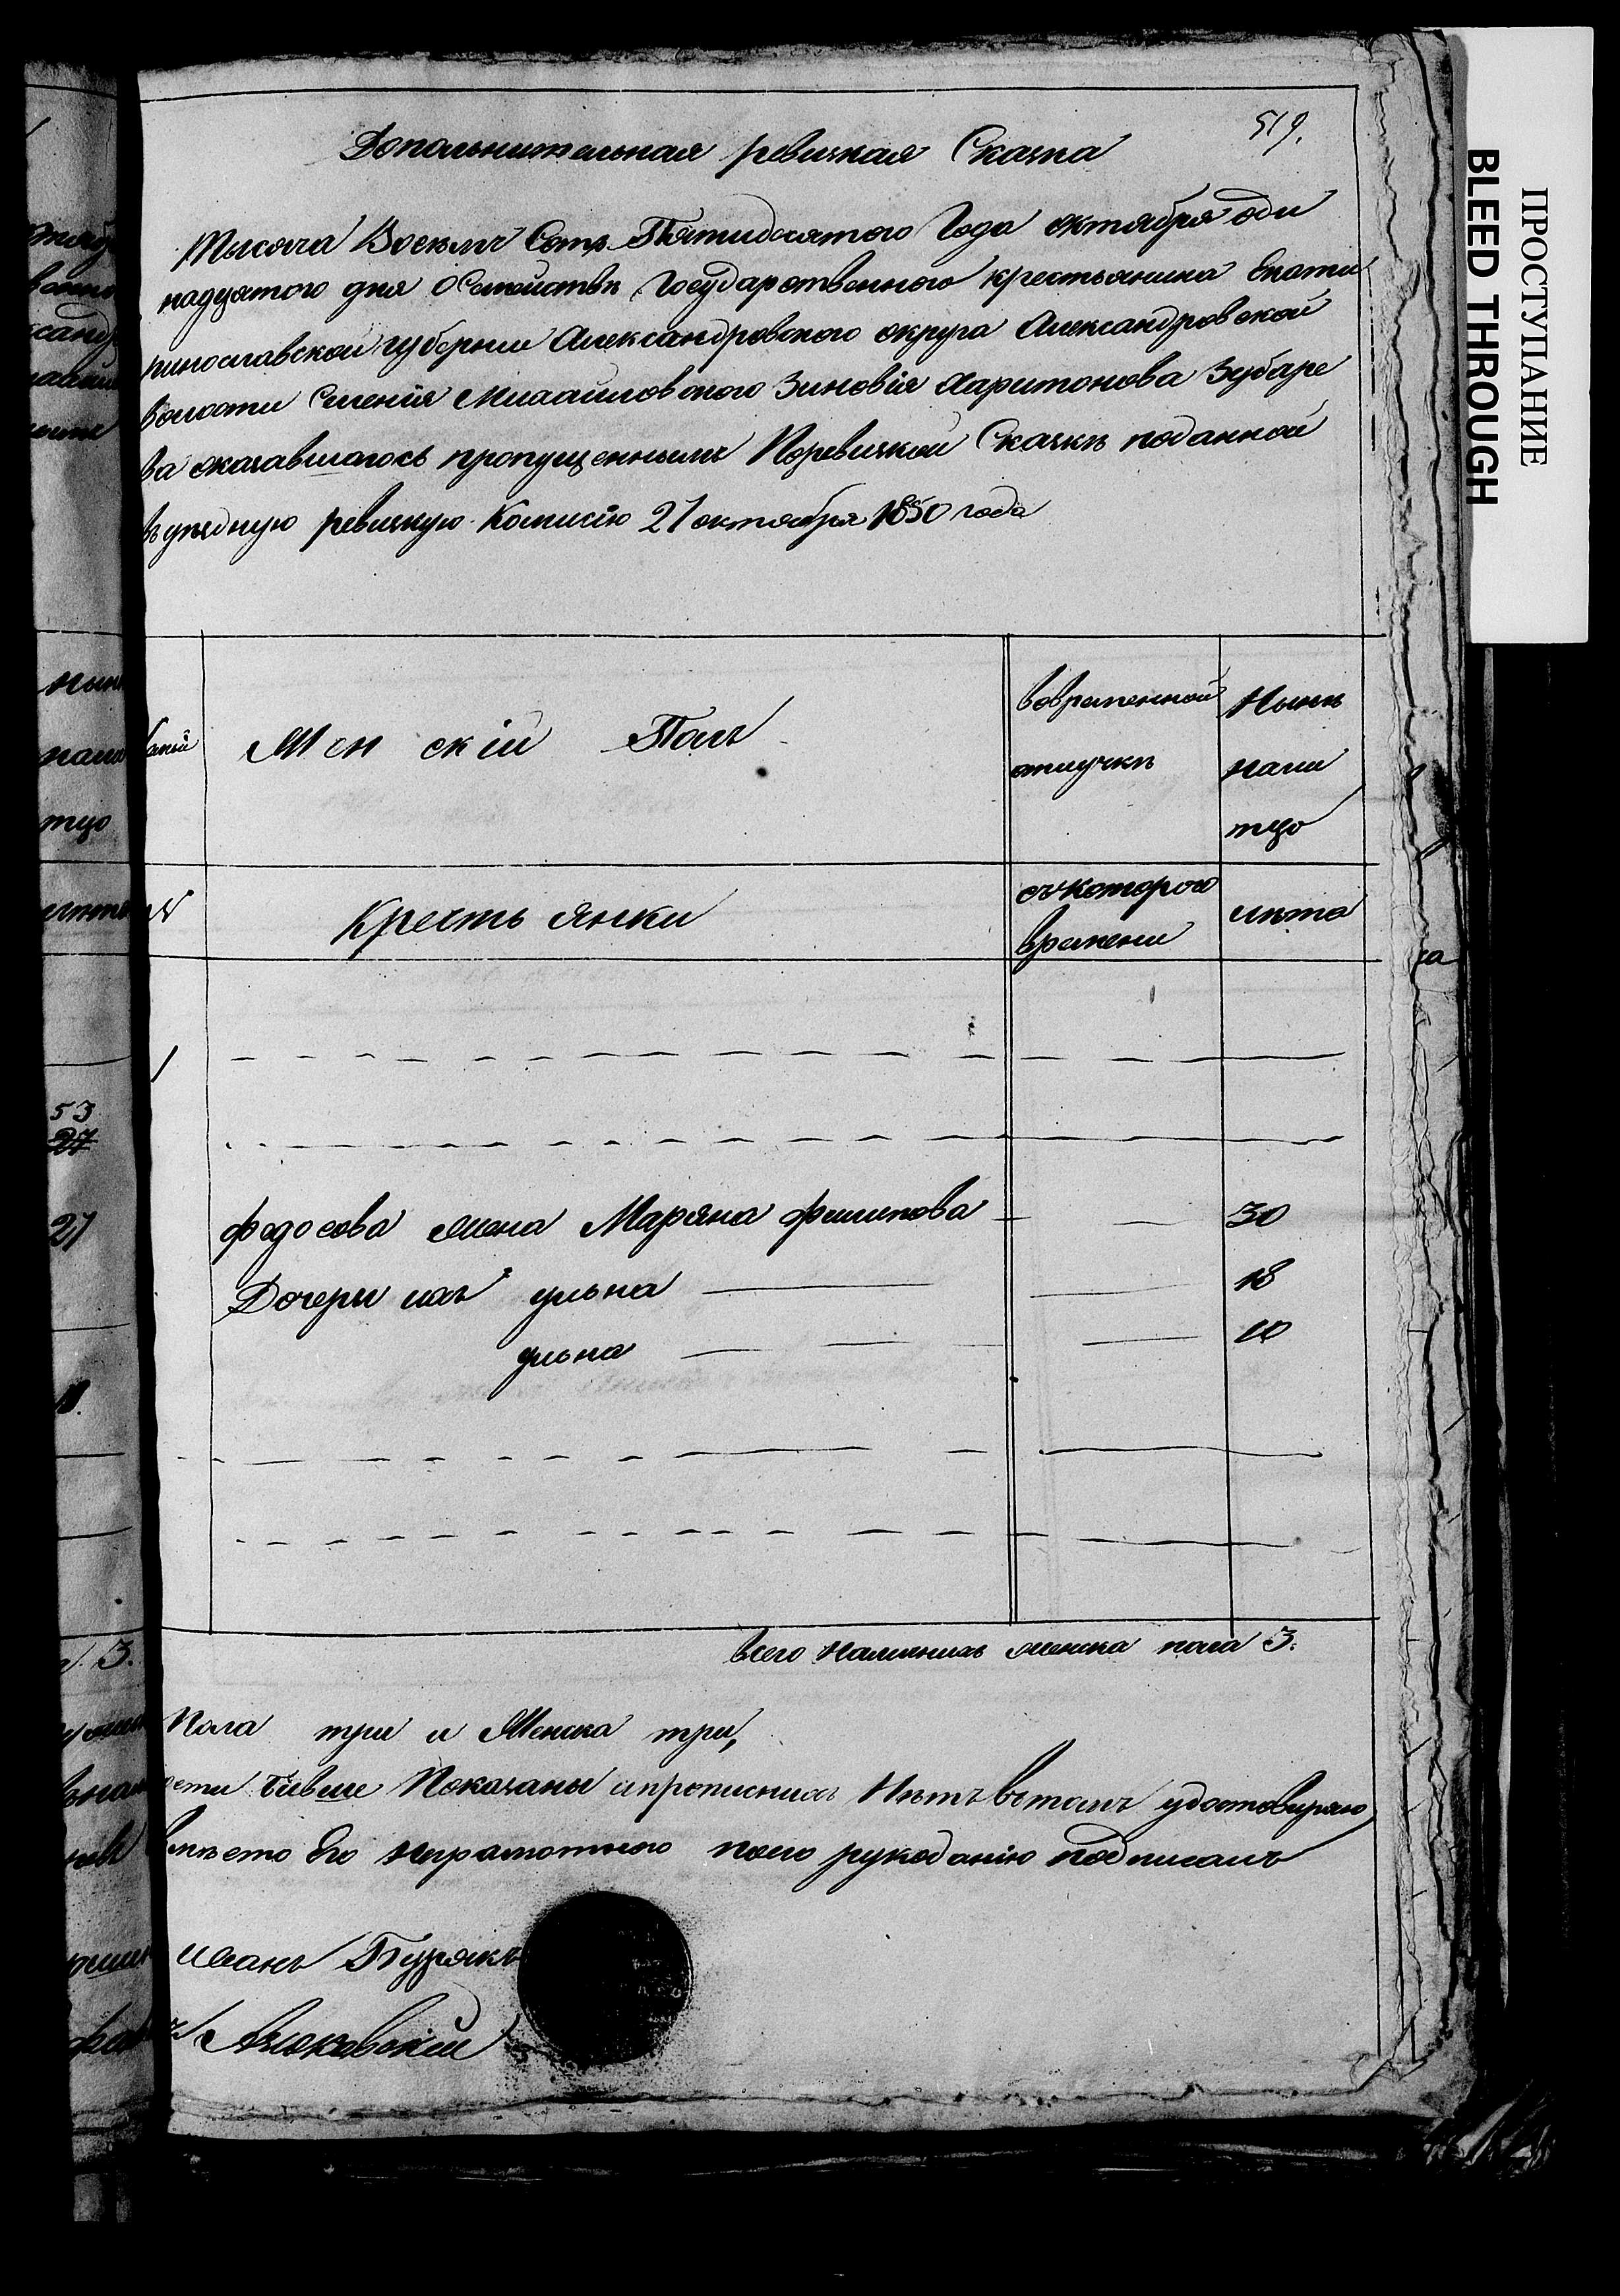 519.
Дополнительная ревизкая Сказка
Тысяча Восемъ Сотъ Пятидесятого Года октября оди
надцятого дня О Семействѣ Государственного крестьянина Екати
ринославской губернии Александровского округа Александровской
Волости Селенія Михайловского Зиновія Харитонова Зубаре
ва оказавшагось пропущеннымъ Поревизкой Сказкѣ поданной
въ уѣздную ревизкую Комисію 21 октября 1850 года
Жен скій Полъ
вовременной
отлучкѣ
Нынѣ
нали
тцо
Кресть янки
съ которого
времени
лѣта
1
Федосова жена Маряна Филипова 30
Дочери ихъ 1 ульна 18
2 ульна 10
Всего наличнихъ женска пола 3.
Пола три и Женска три,
Показаны и прописнихъ Нѣтъ вътомъ удостовиряю
вмѣсто Его Неграмотного поего рукоданію подписалъ
иванъ Бурякъ
53
27
27
3.
ПРОСТУПАНИЕ
BLEED THROUGH